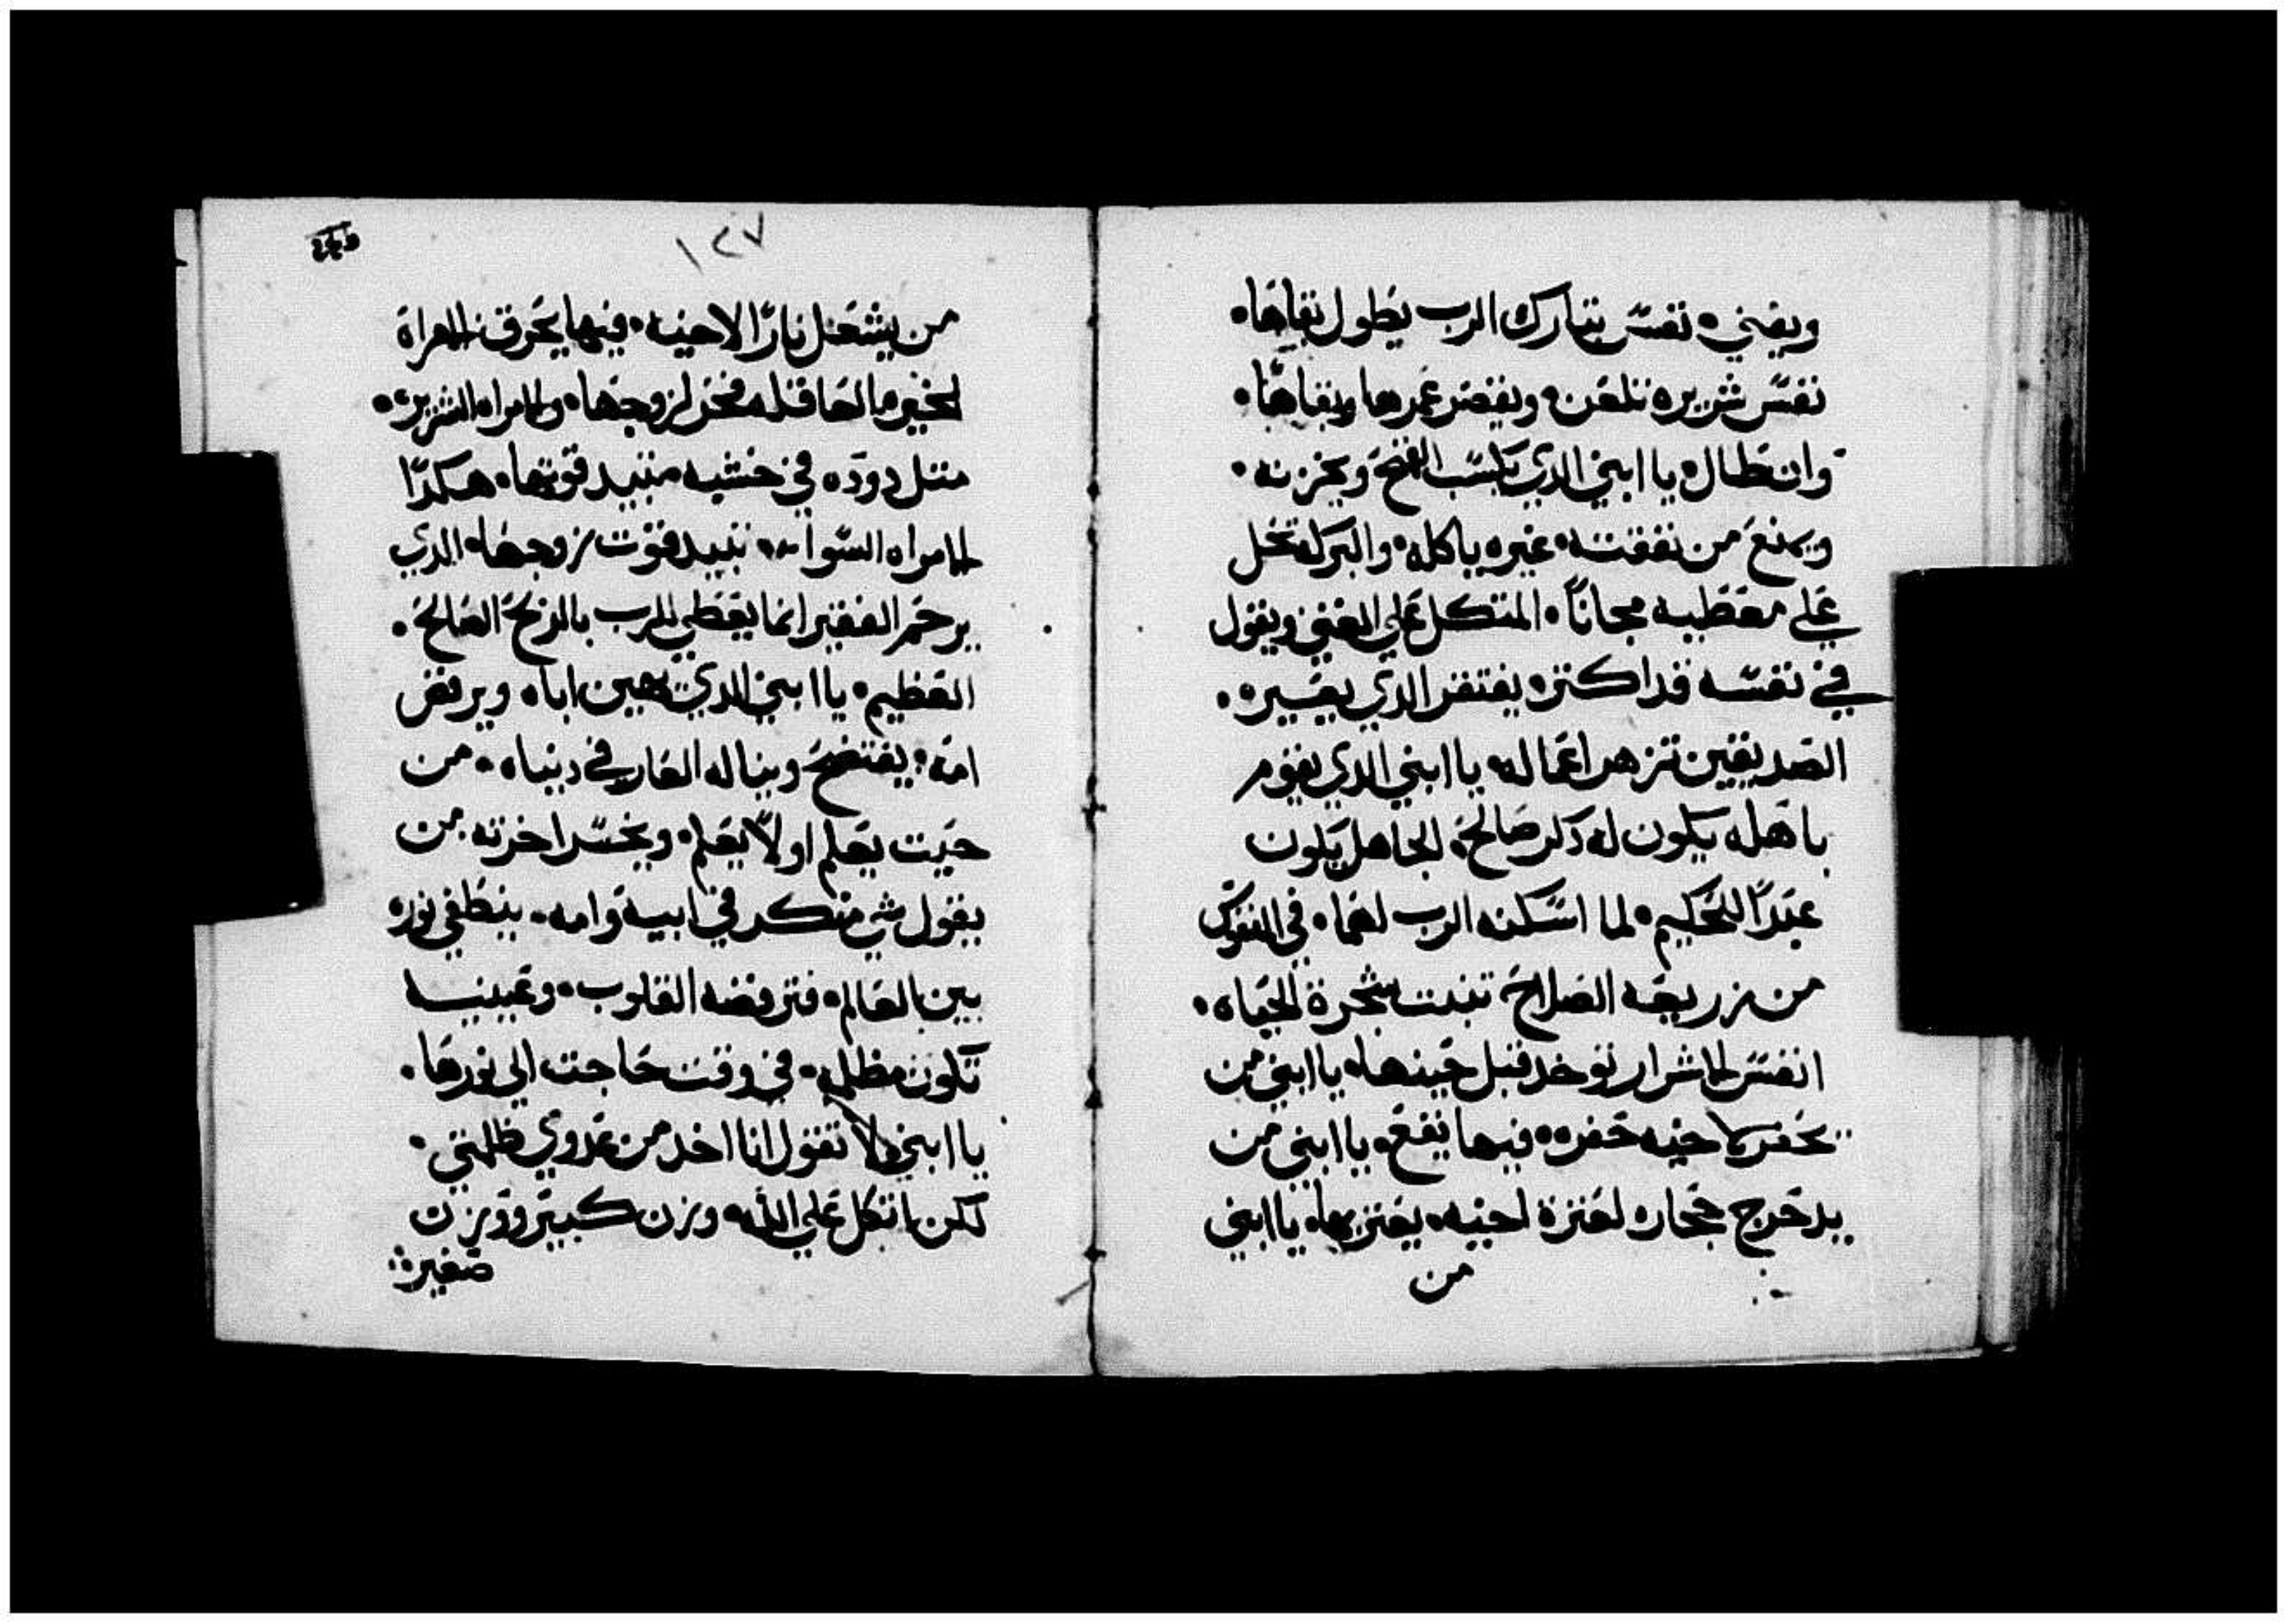 ويفني. نفس تتبارك الرب يطول بقاها.
نفس شريره تلعن. ويقصر عمرها وبقاها.
وان طال. يا ابني الدي يكسب القمح ويخزنه.
ويمنع من نفقته. غيره ياكله. والبركه تحل
علي معطيه مجاناً. المتكل علي الغني ويقول
في نفسه قد اكتنز. يفتقر الدي يغيره.
الصديقين تزهر اعماله. يا ابني الدي يقوم
باهله يكون له دكر صالح. الجاهل يكون
عبداً للحكيم. لما اسكنه الرب لهما. في النفوس
من زريعه الصلاح. تنبت شجرة الحياه.
انفس الاشرار توخد قبل حينها. يا ابني من
يحفر لاخيه حفره. فيها يقع. يا ابني من
يدحرج حجاره لعترة لاخيه. يعتر بها. يا ابني
من
١٢٧
من يشعل ناراً لاخيه. فيها يحرق. المراة
الخيره العاقله فخر لزوجها. والامراه الشريره.
متل دوده في خشبه متبيد قوتها. هكدا
الامراه السوا. تبيد قوت زوجها. الدي
يرحم الفقير انما يعطي للرب بالربح الصالح.
العظيم. يا ابني الدي يهين اباه ويرفض
امه. يفتضح ويناله العار في دنياه. من
حيت يعلم او لا يعلم. ويخسر اخرته من
يقول شي منكر في ابيه وامه. ينطفي نوره
بين العالم. فترفضه القلوب. وعينيه
تكون مظلمه. في وقت حاجته الي نورها.
يا ابني لا تقول انا اخد من عدوي ظلمتي.
لكن اتكل علي الله. وزن كبير ووزن
صغير